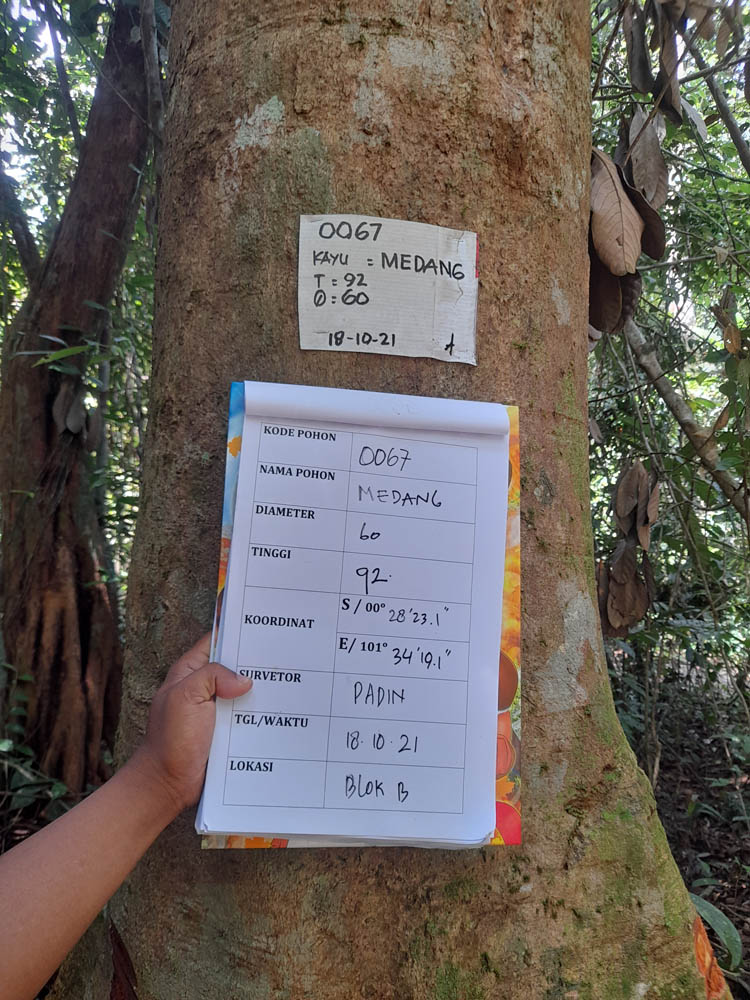 0067
KAYU = MEDANG
T = 92
Ø : 60
18-10-21
KODE POHON 0067
NAMA POHON MEDANG
DIAMETER 60
TINGGI 92.
KOORDINAT S / 00° 28'23.1"
E/ 101° 34'19.1"
SURVETOR PADIN
TGL/WAKTU 18.10.21
LOKASI BLOK B